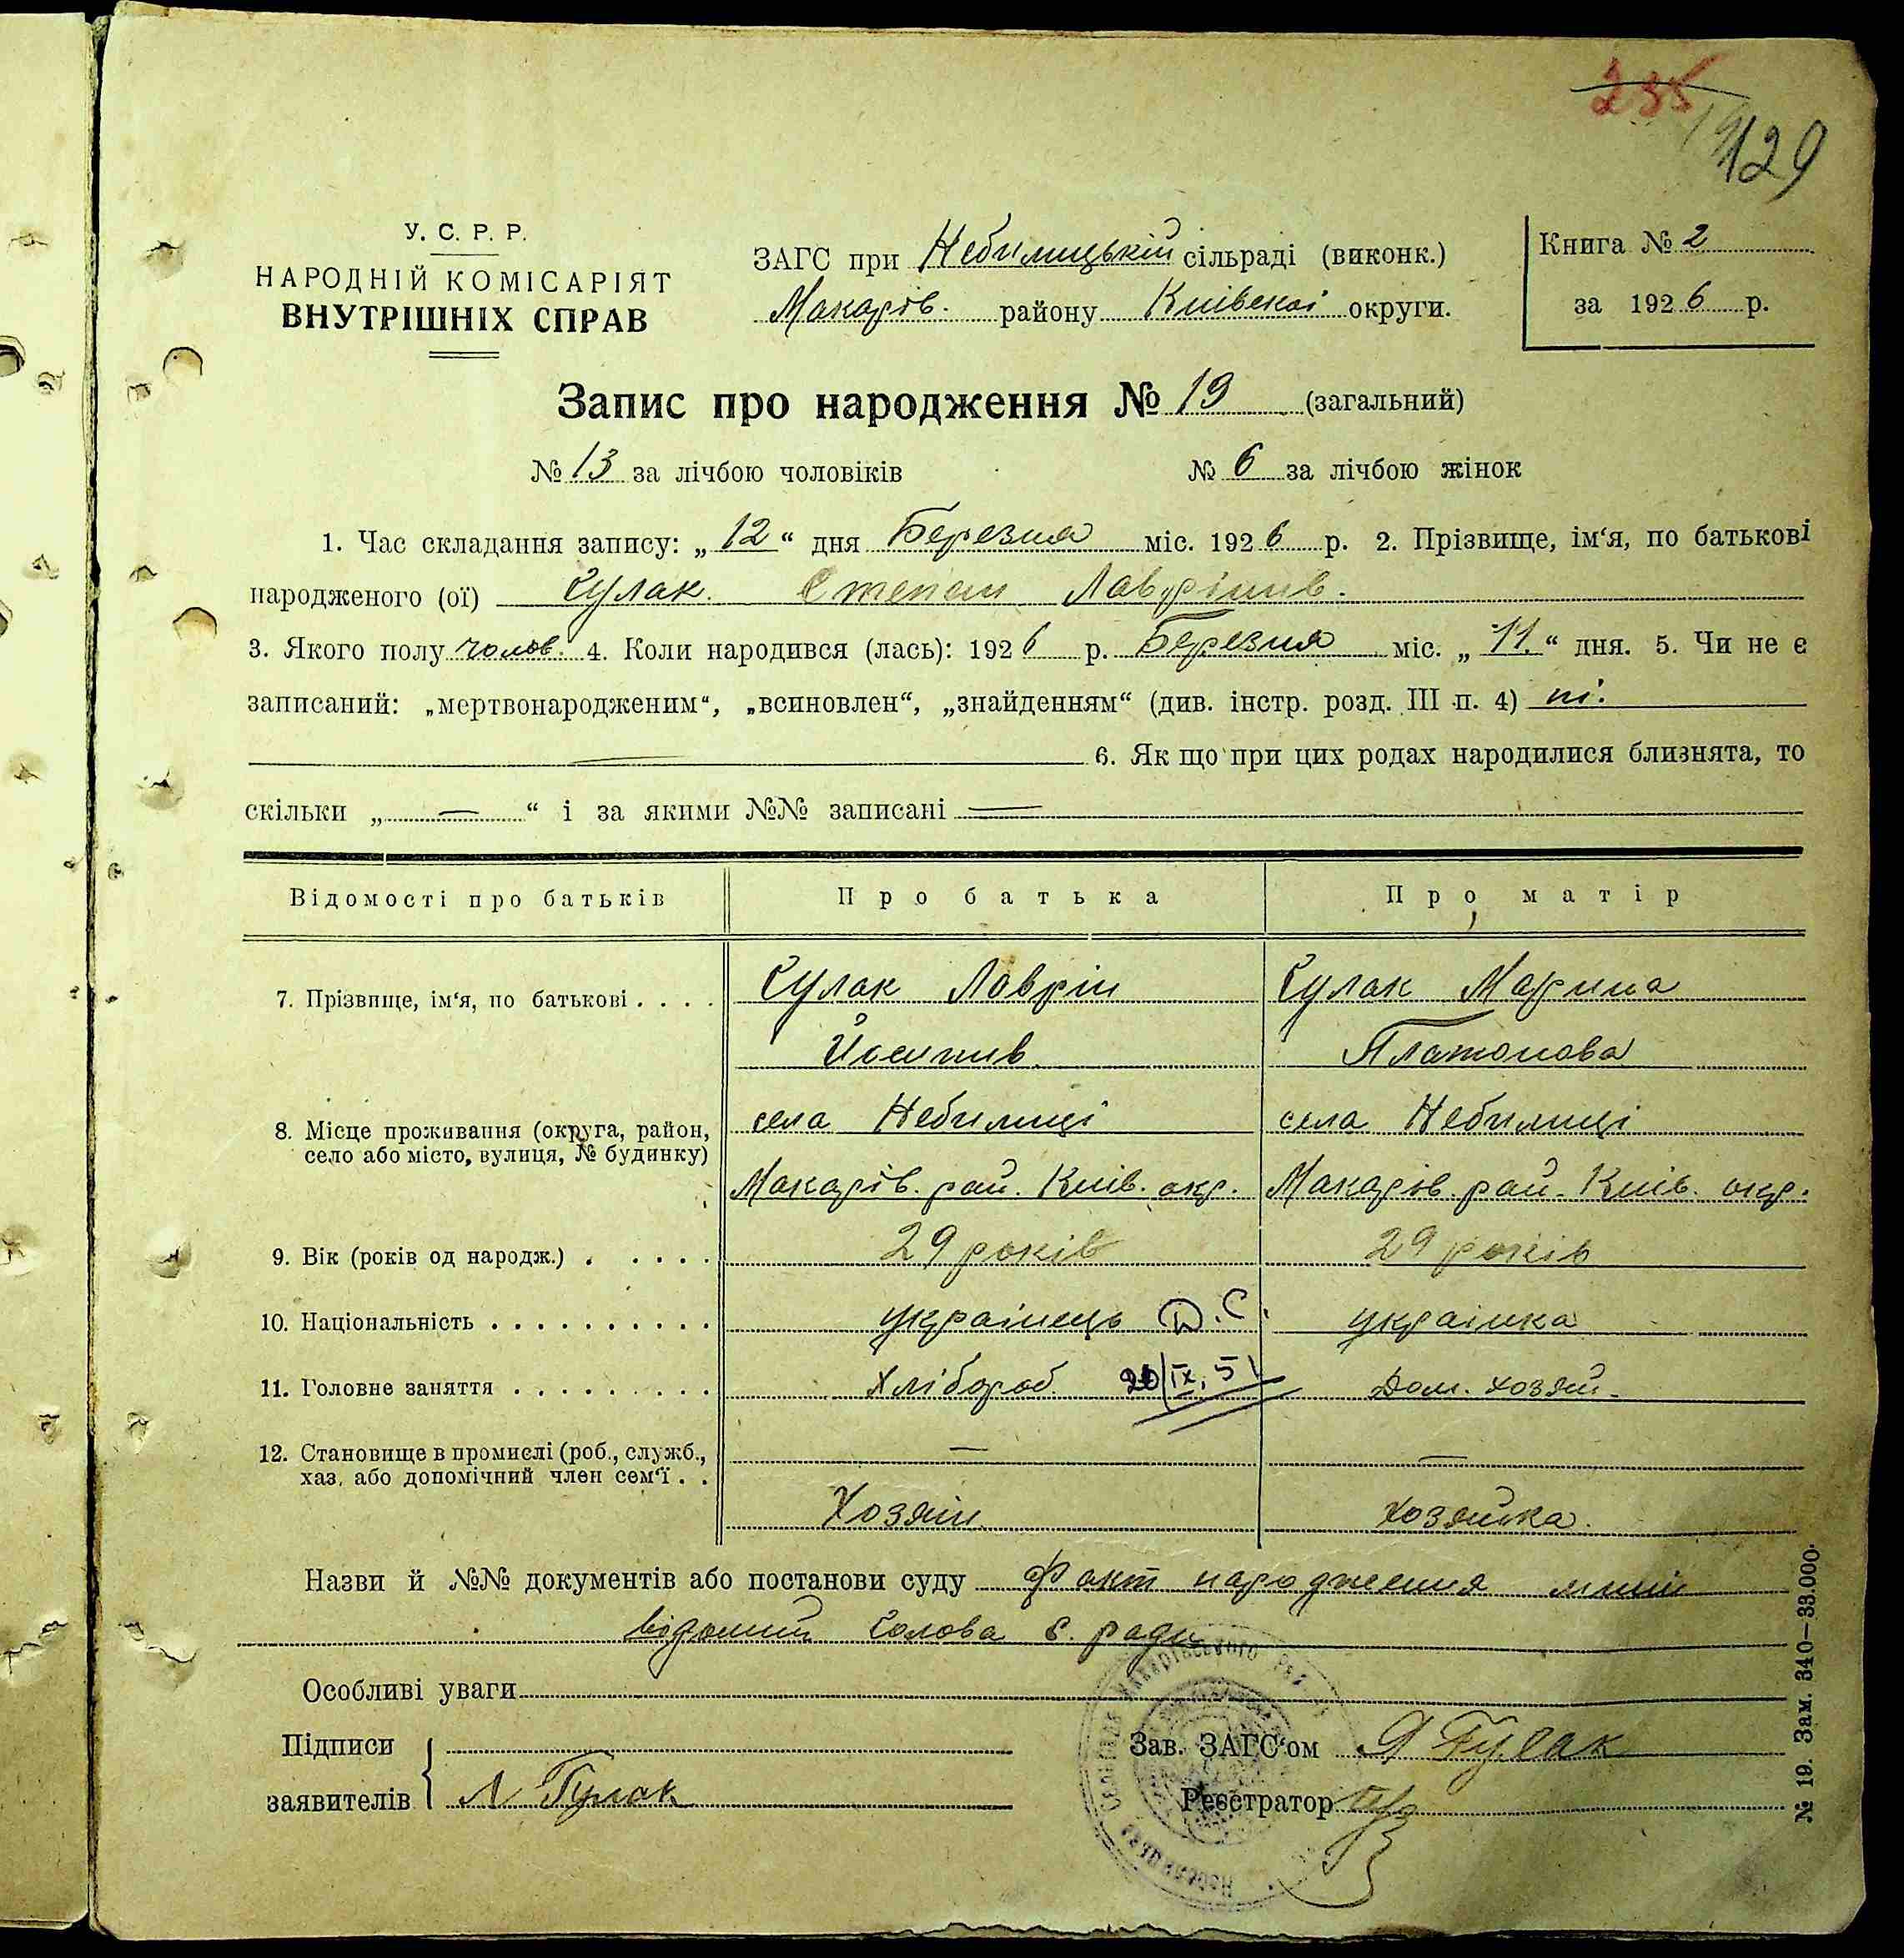 235
129
У. С. Р. Р.
НАРОДНІЙ КОМІСАРІЯТ
ВНУТРІШНІХ СПРАВ
ЗАГС при Небилицькій сільраді (виконк.)
Макарів. району Київскої округи.
Книга № 2
за 1926 р.
Запис про народження № 19 (загальний)
№ 13 за лічбою чоловіків № 6 за лічбою жінок
1. Час складання запису: „12“ дня Березня міс. 1926 р. 2. Прізвище, ім‘я, по батькові
народженого (ої) Гулак. Степан Лаврінів.
3. Якого полу чолов. 4. Коли народився (лась): 1926 р. Березня міс. „11.“ дня. 5. Чи не є
записаний: „мертвонародженим“, „всиновлен“, „знайденням“ (див. інстр. розд. III п. 4) ні.
6. Як що при цих родах народилися близнята, то
скільки „ — “ і за якими №№ записані —
Відомості про батьків Про батька Про матір
7. Прізвище, ім‘я, по батькові . . . . Гулак Лаврін Гулак Марина
Йосипів Платонова
8. Місце проживання (округа, район, села Небилиці села Небилиці
село або місто, вулиця, № будинку)
Макарів. рай. Киів. окр. Макарів. рай. Киів. окр.
9. Вік (років од народж.) . . . . . 29 років 29 років
10. Національність . . . . . . . . . . українець українка
11. Головне заняття . . . . . . . . . Хлібороб 20/IX, 51 Дом. хозяй.
12. Становище в промислі (роб., служб., — —
хаз. або допомічний член сем‘ї . .
Хозяін хозяйка.
Назви й №№ документів або постанови суду Факт народження мині
відомий Голова с. ради
Особливі уваги
Підписи
заявителів Л Гулак
Зав. ЗАГС‘ом Я Гулак
Реєстратор
№ 19. Зам. 340—33.000.